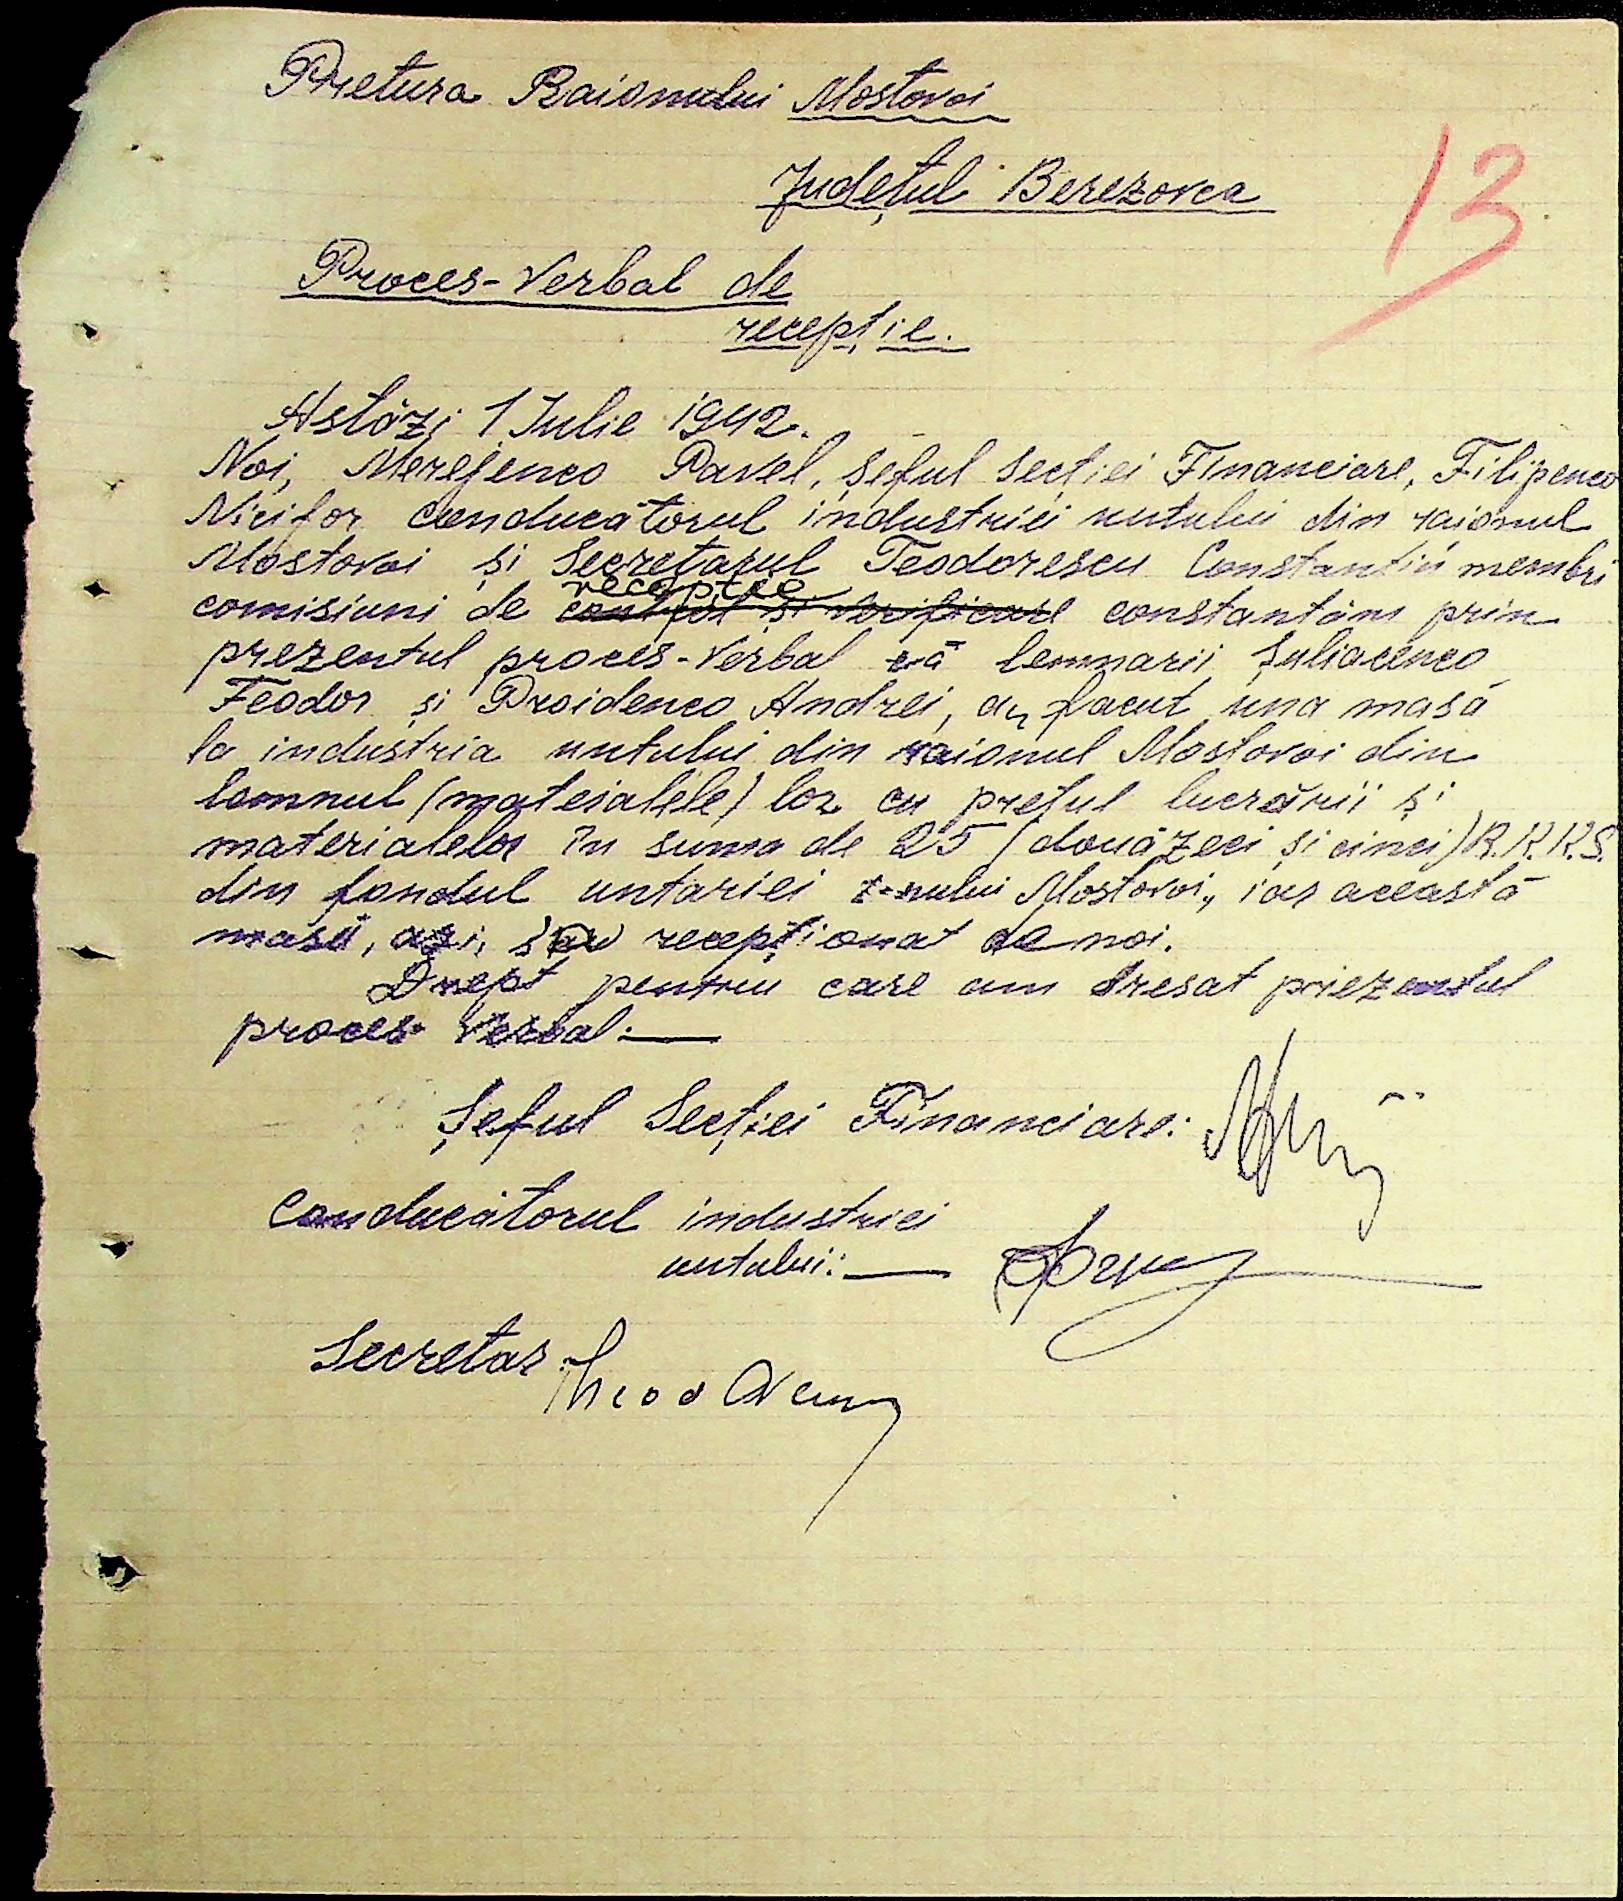 Pretura Raionului Mostovoi
13
Județul Berezovca
Proces-Verbal de
recepție.
Astăzi 1 Iulie 1942.
Noi, Merejenco Pavel, șeful secției Financiare, Filipenco
Nicifor conducătorul industriei untului din raionul
Mostovoi și Secretarul Teodorescu Constantin membri
recepție
comisiuni de control și verificare constatăm prin
prezentul proces-verbal că lemnarii Șuliacenco
Feodor și Proidenco Andrei, au facut una masă
la industria untului din raionul Mostovoi din
lemnul (materialele) lor cu prețul lucrării și
materialelor în suma de 25 (douăzeci și cinci) R.K.K.S.
din fondul untariei r-nului Mostovoi, iar această
masă, azi, s'au recepționat de noi.
Drept pentru care am dresat prezentul
proces verbal:—
Șeful Secției Financiare:
Conducătorul industriei
untului:—
Secretar